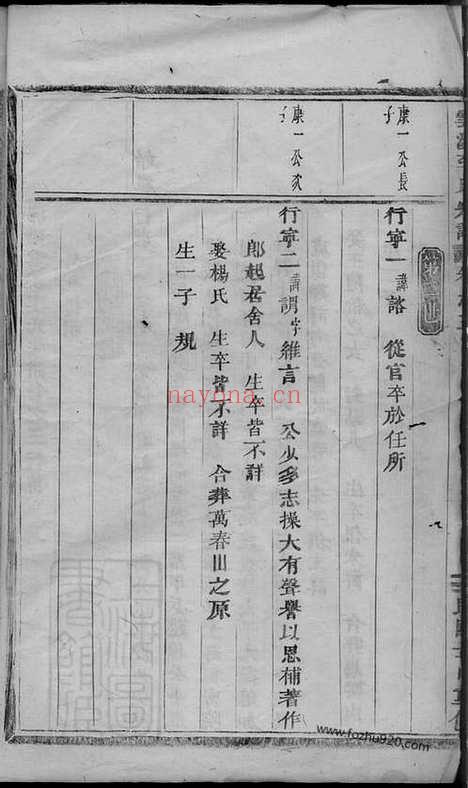 康一公長子
行寧一 諱諮 從官卒於任所
康一公次子
行寧二 諱謂字維言 公少多志操大有聲譽以恩補著作
郎起居舍人 生卒皆不詳
娶楊氏 生卒皆不詳 合葬萬春山之原
生一子 規
nayona.cn
www.fozhu920.com